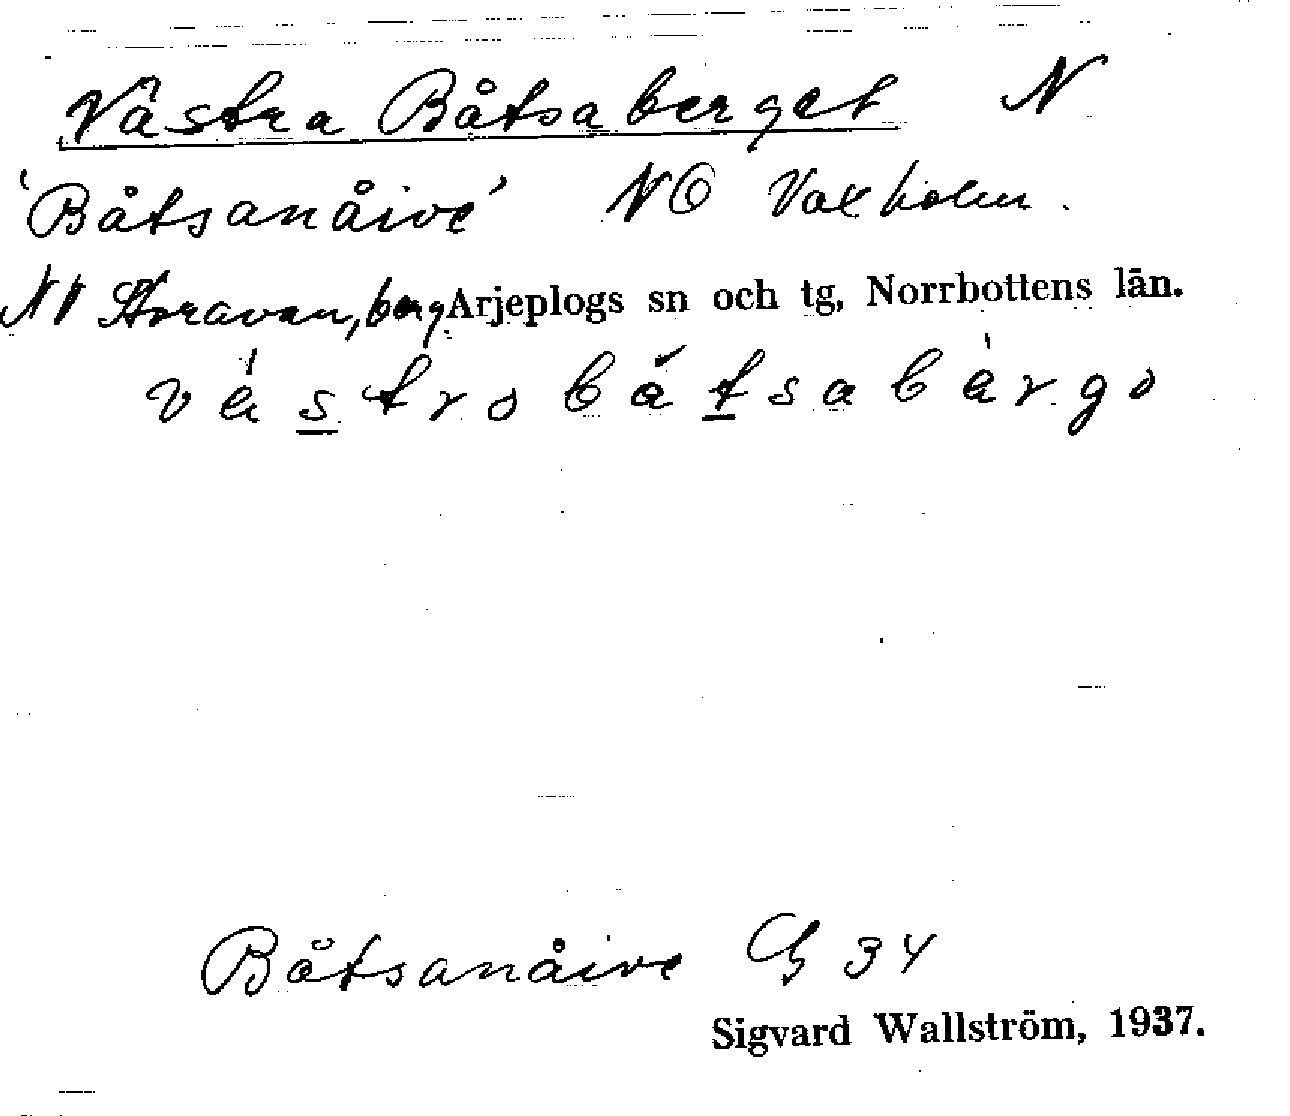 Västra Båtsaberget N
'Båtsanåive' NO Vaxholm.
NV Storavan, berg Arjeplogs sn och tg, Norrbottens län.
västrobåtsabärgo
Båtsanåive G 34
Sigvard Wallström, 1937.